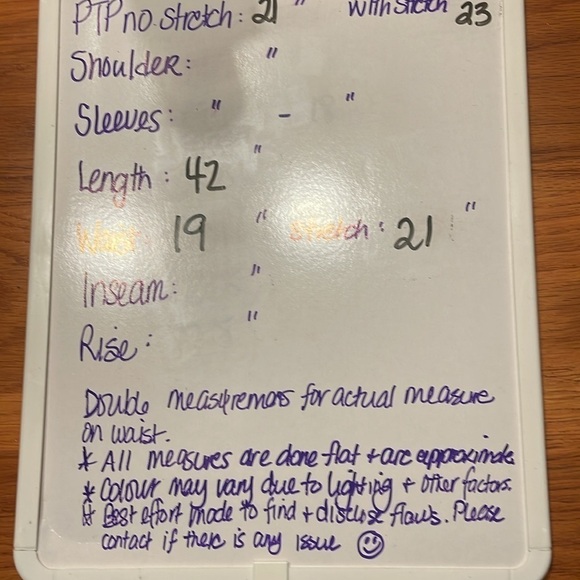 PTP no Stretch: 21 " With Stretch 23
Shoulder: "
Sleeves: " - "
Length: 42 "
Waist: 19 " Stretch: 21 "
Inseam: "
Rise: "
Double for actual measure
on waist.
* All measures are done flat + are approximate
* Colour may vary due to lighting + other factors.
* Best effort made to find + disclose flaws. Please
contact if there is any issue ☺